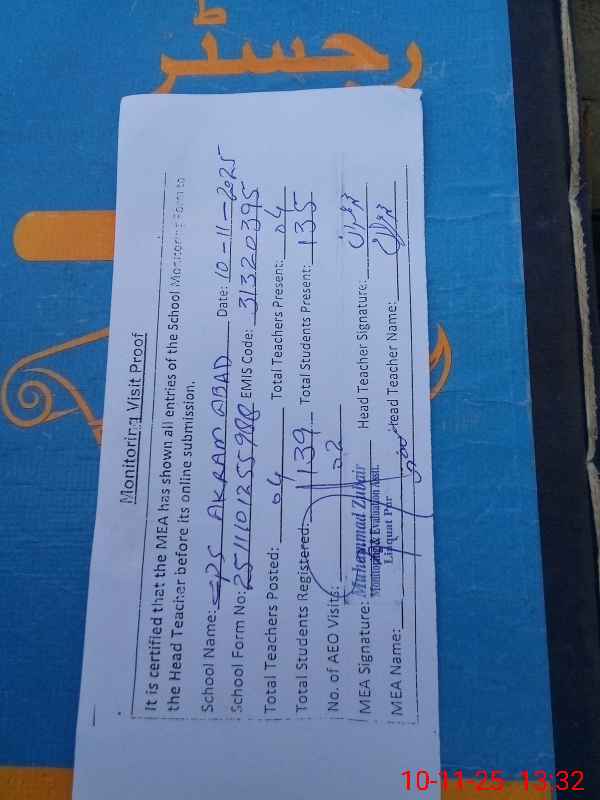 رجسٹر
Monitoring Visit Proof
It is certified that the MEA has shown all entries of the School Monitoring Form to
the Head Teacher before its online submission.
School Name: GPS AKRAM ABAD Date: 10-11-2025
School Form No: EMIS Code: 31320395
Total Teachers Posted: 04 Total Teachers Present: 04
Total Students Registered: 139 Total Students Present: 135
No. of AEO Visits: 02
MEA Signature: Muhammad Zubair Head Teacher Signature:
Monitoring & Evaluation Asstt.
Liaquat Pur
MEA Name: Head Teacher Name:
10-11-25 13:32